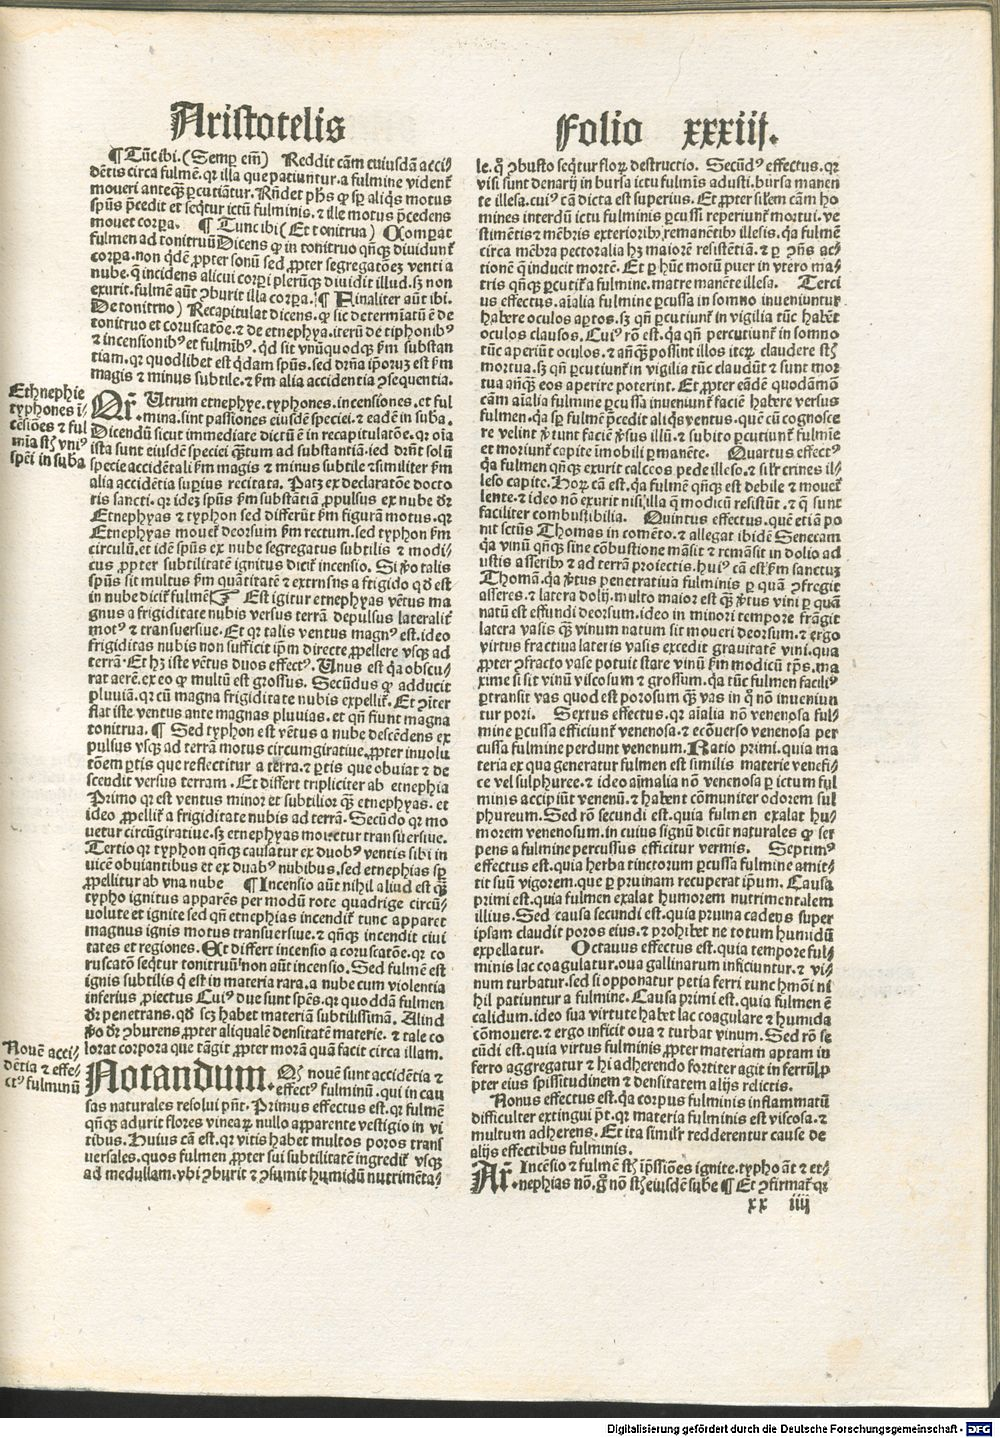 Aristotelis
Folio xxxiij.
¶ Tūc ibi. (Semꝑ em̄) Reddit cām cuiusdā acci⸗
dētis circa fulmē. qꝛ illa que patiuntur. a fulmine vident᷑
moueri anteqꝫ ꝑcutiātur. Rn̄det ph̄s ꝙ sꝑ aliq̇s motus
spūs p̄cedit et seq̇tur ictū fulminis. ⁊ ille motus p̄cedens
mouet corꝑa. ¶ Tunc ibi (Et tonitrua) Comparat
fulmen ad tonitruū Dicens ꝙ in tonitruo qn̄qꝫ diuidunt᷑
corꝑa. non q̇dē ꝓpter sonū sed ꝓpter segregatōeꝫ venti a
nube. q̇ incidens alicui corꝑi pleruqꝫ diuidit illud. sꝫ non
exurit. fulmē aūt ↄburit illa corꝑa. ¶ Finaliter aūt ibi.
De tonitrno) Recapitulat dicens. ꝙ sic determiatū ē de
tonitruo et coruscatōe. ⁊ de etnephya. iterū de tiphonibꝰ
⁊ incensionibꝰ et fulmībꝰ. qd̄ sit vnūquodqꝫ ẜm substan
tiam. qꝛ quodlibet est q̇dam spūs. sed dr̄na ip̄oruꝫ est ẜm
magis ⁊ minus subtile. ⁊ ẜm alia accidentia ↄsequentia.
Ethnephie
typhones ī⸗
cēsiōes ⁊ ful
mīa st̄ vniꝰ
spēi in suba
Qr̄. Utrum etnephye. typhones. incensiones. et ful
mina. sint passiones eiusdē speciei. ⁊ eadē in suba.
Dicendū sicut immediate dictū ē in recapitulatōe. qꝛ oīa
ista sunt eiusdē speciei qꝫtum ad substantiā. sed dr̄nt solū
specie accidētali ẜm magis ⁊ minus subtile ⁊ similiter ẜm
alia accidētia suꝑius recitata. Patꝫ ex declaratōe docto
ris sancti. qꝛ ideꝫ spūs ẜm substātiā ꝓpulsus ex nube dr̄
Etnephyas ⁊ typhon sed differūt ẜm figurā motus. qꝛ
Etnephyas mouet᷑ deorsum ẜm rectum. sed typhon ẜm
circulū. et idē spūs ex nube segregatus subtilis ⁊ modi⸗
cus ꝓpter subtilitatē ignitus dicit᷑ incensio. Si ꝟo talis
spūs sit multus ẜm quātitatē ⁊ extrn̄sus a frigido qd̄ est
in nube dicit᷑ fulmē ☞ Est igitur etnephyas vētus ma
gnus a frigiditate nubis versus terrā depulsus laterali⸗
motꝰ ⁊ transuersiue. Et qꝛ talis ventus magnꝰ est. ideo
frigiditas nubis non sufficit ip̄m directe ꝓpellere vsqꝫ ad
terrā. Et hꝫ iste vētus duos effectꝰ. Unus est q̇a obscu⸗
rat aerē. ex eo ꝙ multū est grossus. Secūdus ꝙ adducit
pluuiā. qꝛ cū magna frigiditate nubis expellit᷑. Et ꝯīter
flat iste ventus ante magnas pluuias. et qn̄ fiunt magna
tonitrua. ¶ Sed typhon est vētus a nube descēdens ex
pulsus vsqꝫ ad terrā motus circumgiratiue. ꝓpter inuolu
tōem ꝑtis que reflectitur a terra. ⁊ ꝑtis que obuiat ⁊ de
scendit versus terram. Et differt tripliciter ab etnephia
Primo qꝛ est ventus minor et subtilior qꝫ etnephyas. et
ideo ꝓpellit᷑ a frigiditate nubis ad terrā. Secūdo qꝛ mo
uetur circūgiratiue. sꝫ etnephyas mouetur transuersiue.
Tertio qꝛ typhon qn̄qꝫ causatur ex duobꝰ ventis sibi in
uicē obuiantibus et ex duabꝰ nubibus. sed etnephias sꝑ
ꝓpellitur ab vna nube ¶ Incensio aūt nihil aliud est qꝫ
typho ignitus apparēs per modū rote quadrige circū⸗
uolute et ignite sed qn̄ etnephias incendit᷑ tunc apparet
magnus ignis motus transuersiue. ⁊ qn̄qꝫ incendit ciui
tates et regiones. Et differt incensio a coruscatōe. qꝛ co
ruscatōn seq̇tur tonitruū non aūt incensio. Sed fulmē est
ignis subtilis q̇ est in materia rara. a nube cum violentia
inferius ꝓiectus Cuiꝰ due sunt spēs. qꝛ quoddā fulmen
dr̄ penetrans. qd̄ scꝫ habet materiām subtilissimā. Aliud
ꝟo dr̄ ↄburens. ꝓpter aliqualē densitatē materie. ⁊ tale co
lorat corpora que tāgit ꝓpter morā quā facit circa illam.
Nouē acci⸗
dētia ⁊ effe⸗
ctꝰ fulmunū
Notandum. Qd̄ nouē sunt accidētia ⁊
effectꝰ fulminū. qui in cau
sas naturales resolui pn̄t. Primus effectus est. qꝛ fulmē
qn̄qꝫ adurit flores vineaꝝ nullo apparente vestigio in vi
tibus. Huius cā est. qꝛ vitis habet multos poros trans
uersales. quos fulmen ꝓpter sui subtilitatē ingredit᷑ vsqꝫ
ad medullam. vbi ↄburit ⁊ ↄsumit humidū nutrimēta⸗
le. q̄ ↄbusto seq̇tur floꝝ destructio. Secūdꝰ effectus. qꝛ
visi sunt denarij in bursa ictu fulmīs adusti. bursa manen
te illesa. cuiꝰ cā dicta est superius. Et ꝓpter sīlem cām ho
mines interdū ictu fulminis ꝑcussi reperiunt᷑ mortui. ve
stimētis ⁊ mēbris exterioribꝰ remanētibꝰ illesis. q̇a fulmē
circa mēbra pectoralia hꝫ maiorē resistētiā. ⁊ ꝑ ↄn̄s ac⸗
tionē q̇ inducit mortē. Et ꝑ hūc motū puer in vtero ma⸗
tris qn̄qꝫ ꝑcutit᷑ a fulmine. matre manēte illesa. Terci
us effectus. aīalia fulmine ꝑcussa in somno inueniuntur
habere oculos aꝑtos. sꝫ qn̄ ꝑcutiunt᷑ in vigilia tūc habēt
oculos clausos. Cuiꝰ rō est. q̇a qn̄ percutiunt᷑ in somno
tūc aperiūt oculos. ⁊ añqꝫ possint illos iteꝝ claudere st̄
mortua. sꝫ qn̄ ꝑcutiunt᷑ in vigilia tūc claudūt ⁊ sunt mor
tua añqꝫ eos aperire poterint. Et ꝓpter eādē quodāmō
cām aīalia fulmine ꝑcussa inueniunt᷑ faciē habere versus
fulmen. q̇a sꝑ fulmē p̄cedit aliq̇s ventus. quē cū cognosce
re velint ꝟtunt faciē ꝟsus illū. ⁊ subito ꝑcutiunt᷑ fulmīe
et moriunt᷑ capite īmobili ꝑmanēte. Quartus effectꝰ
q̇a fulmen qn̄qꝫ exurit calceos pede illeso. ⁊ silr̄ crines il⸗
leso capite. Hoꝝ cām est. q̇a fulmē qn̄qꝫ est debile ⁊ mouet᷑
lente. ⁊ ideo nō exurit nisi illa q̄ modicū resistūt. ⁊ q̄ sunt
faciliter combustibilia. Quintus effectus. quē etiā po
nit sctūs Thomas in comēto. ⁊ allegat ibidē Senecam
q̇a vinū qn̄qꝫ sine cōbustione māsit ⁊ remāsit in dolio ad
ustis asseribꝰ ⁊ ad terrā proiectis. huiꝰ cā est ẜm sanctuꝫ
Thomā. q̇a ꝟtus penetratiua fulminis ꝑ quā ↄfregit
asseres. ⁊ latera dolij. multo maior est qꝫ ꝟtus vini ꝑ quā
natū est effundi deorsum. ideo in minori tempore frāgit
latera vasis qꝫ vinum natum sit moueri deorsum. ⁊ ergo
virtus fractiua lateris vasis excedit grauitatē vini. qua
ꝓpter ↄfracto vase potuit stare vinū ẜm modicū tp̄s. ma
xime si sit vinū viscosum ⁊ grossum. q̇a tūc fulmen faciliꝰ
ꝑtransit vas quod est porosum qꝫ vas in q̄ nō inueniun
tur pori. Sextus effectus. qꝛ aīalia nō venenosa ful⸗
mine ꝑcussa efficiunt᷑ venenosa. ⁊ ecōuerso venenosa per
cussa fulmine perdunt venenum. Ratio primi. quia ma
teria ex qua generatur fulmen est similis materie venefi⸗
ce vel sulphuree. ⁊ ideo aīmalia nō venenosa ꝑ ictum ful
minis accipiūt venenū. ⁊ habent cōmuniter odorem sul
phureum. Sed rō secundi est. quia fulmen exalat hu⸗
morem venenosum. in cuius signū dicūt naturales ꝙ ser
pens a fulmine percussus efficitur vermis. Septimꝰ
effectus est. quia herba tinctorum ꝑcussa fulmine amit⸗
tit suū vigorem. que ꝑ pruinam recuperat ip̄um. Causa
primi est. quia fulmen exalat humorem nutrimentalem
illius. Sed causa secundi est. quia pruina cadens super
ipsam claudit poros eius. ⁊ prohibet ne totum humidū
expellatur. Octauus effectus est. quia tempore ful⸗
minis lac coagulatur. oua gallinarum inficiuntur. ⁊ vi⸗
num turbatur. sed si opponatur petia ferri tunc hmōi ni
hil patiuntur a fulmine. Causa primi est. quia fulmen ē
calidum. ideo sua virtute habet lac coagulare ⁊ humida
cōmouere. ⁊ ergo inficit oua ⁊ turbat vinum. Sed rō se⸗
cūdi est. quia virtus fulminis ꝓpter materiam aptam in
ferro aggregatur ⁊ hi adherendo fortiter agit in ferrū ꝓ⸗
pter eius spissitudinem ⁊ densitatem alijs relictis.
Nonus effectus est. q̇a corpus fulminis inflammatū
difficulter extingui pt̄. qꝛ materia fulminis est viscosa. ⁊
multum adherens. Et ita similr̄ redderentur cause de
alijs effectibus fulminis.
Ar̄. Incēsio ⁊ fulmē st̄ īpssiōes ignite. typho āt ⁊ et⸗
nephias nō. g̊ nō st̄ eiusdē sube ¶ Et ↄfirmat᷑ qꝛ
xx iiij
Digitalisierung gefördert durch die Deutsche Forschungsgemeinschaft - DFG